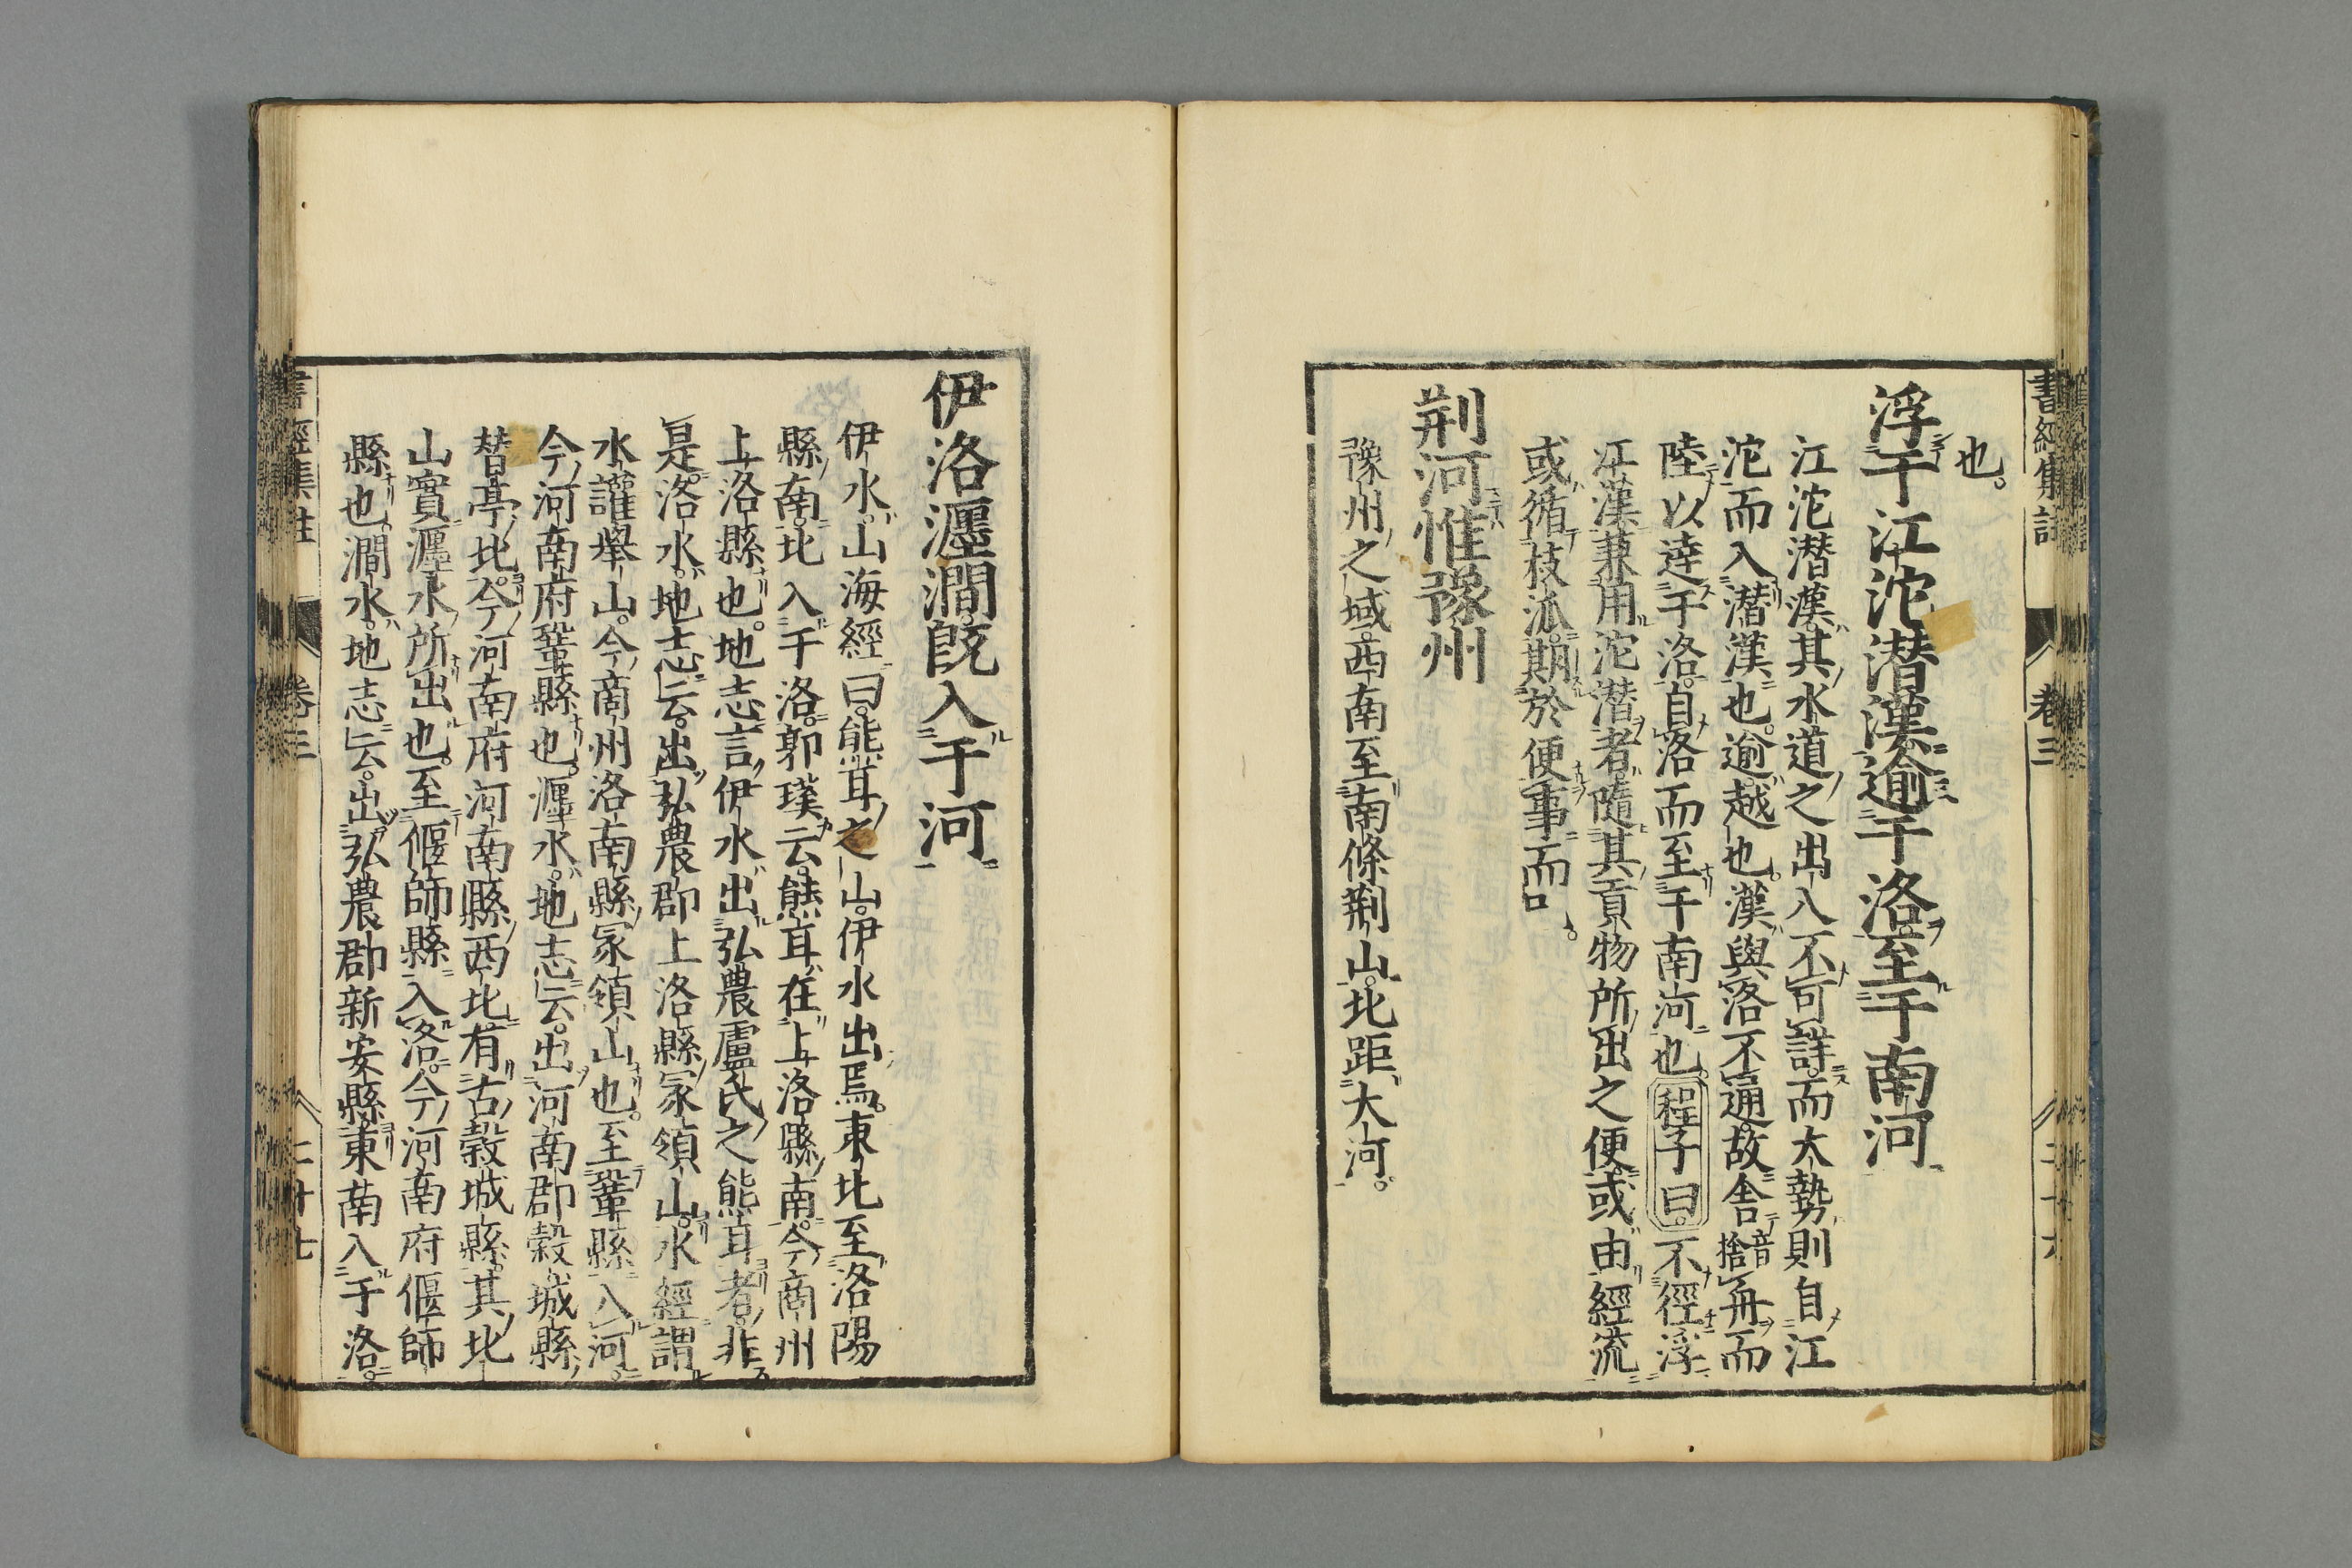 書經集註 卷三
也。
浮于江沱潛漢逾于洛至于南河
江沱潛漢其水道之出入不可詳而大勢則自江
沱而入潛漢也。逾越也。漢與洛不通故舍音捨舟而
陸以達于洛。自洛而至于南河也。程子曰。不徑浮
江漢兼用沱潛者隨其貢物所出之便或由經流
或循枝派。期於便事而已。
荆河惟豫州
豫州之域。西南至南條荆山。北距大河。
伊洛瀍澗既入于河
伊水。山海經曰。熊耳之山。伊水出焉。東北至洛陽
縣南。北入于洛。郭璞云。熊耳在上洛縣南。今商州
上洛縣也。地志言伊水出弘農盧氏之熊耳者。非
是。洛水。地志云。出弘農郡上洛縣冢領山。水經謂
水讙舉山。今商州洛南縣冢領山也。至鞏縣入河。
今河南府鞏縣也。瀍水。地志云。出河南郡穀城縣
朁亭北。今河南府河南縣西北有古穀城縣。其北
山實瀍水所出也。至偃師縣入洛。今河南府偃師
縣也。澗水。地志云。出弘農郡新安縣東南入于洛。
書經集註 卷三 二十七